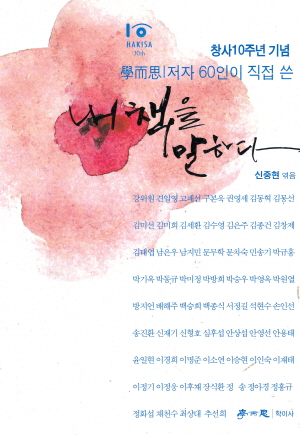 HAKISA
10th
창사10주년 기념
學而思 | 저자 60인이 직접 쓴
내 책을
말하다
신중현 엮음
강위원 견일영 고매선 구본욱 권영세 김동혁 김몽선
김미선 김미희 김세환 김수영 김은주 김종건 김창제
김태엽 남은우 남지민 문무학 문차숙 민송기 박규홍
박기옥 박동규 박미정 박방희 박승우 박영옥 박원열
방지언 배해주 백승희 백종식 서정길 석현수 손인선
송진환 신재기 신형호 심후섭 안상섭 안영선 안용태
윤일현 이경희 이명준 이소연 이승현 이인숙 이재태
이정기 이정웅 이후재 장식환 정 송 정아경 정홍규
정화섭 채천수 최상대 추선희
學而思 | 학이사